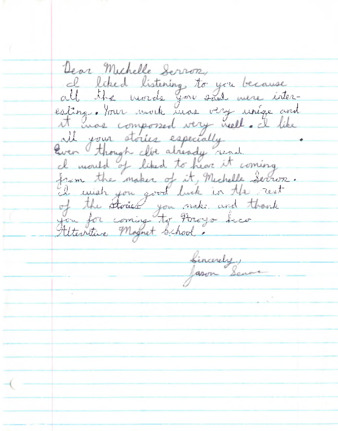 Dear Michelle Serros
I liked listening to you because
all the words you said were inter-
esting. Your work was very uniqe and
it was composed very well. I like
all your stories especially .
Even though I've already read
I would of liked to hear it coming
from the maker of it, Michelle Serros.
I wish you good luck in the rest
of the stories you make and thank
you for coming to Arroyo Seco
Alternitive Magnet School.
Sincerely,
Jason